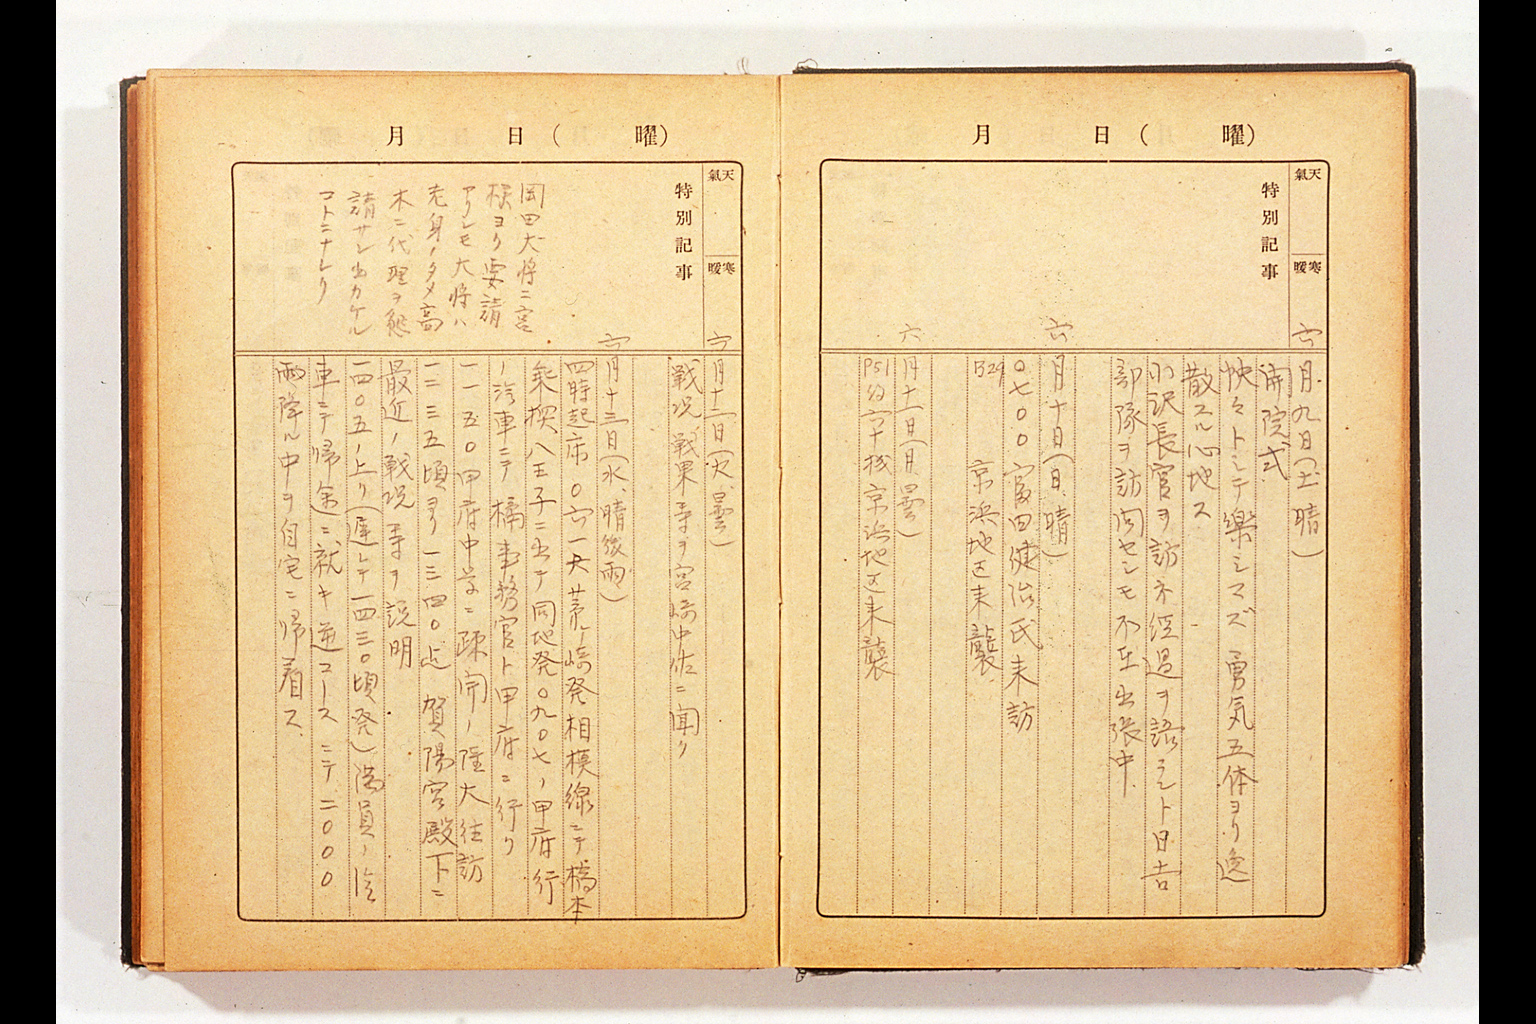 月　日（　曜）
天氣
寒暖
特別記事
六月九日（土、晴）
開院式
怏々トシテ樂シマズ 勇気五体ヨリ逸
散スル心地ス
小沢長官ヲ訪ネ経過ヲ語ラント日吉
部隊ヲ訪問セシモ不在出張中
六月十日（日、晴）
〇七〇〇 富田健治氏来訪
B29 京浜地区来襲
六月十一日（月、曇）
P51約六十機京浜地区来襲
月　日（　曜）
天氣
寒暖
特別記事
岡田大将ニ宮
様ヨリ要請
アリシモ大将ハ
老身ノタメ高
木ニ代理ヲ
請サレ出カケル
コトニナレリ
六月十二日（火、曇）
戦況、戦果等ヲ宮崎中佐ニ聞ク
六月十三日（水、晴後雨）
四時起床 〇六一五 茅ヶ崎発相模線ニテ橋本
乗換、八王子ニ出テ同地発〇九〇七ノ甲府行
ノ汽車ニテ橘事務官ト甲府ニ行ク
一一五〇甲府中学ニ疎開ノ陸大往訪
一二三五頃ヨリ一三四〇迄 賀陽宮殿下ニ
最近ノ戦況等ヲ説明
一四〇五ノ上リ（遅レテ一四三〇頃発）満員ノ汽
車ニテ帰途ニ就キ逆コースニテ二〇〇〇
雨降ル中ヲ自宅ニ帰着ス